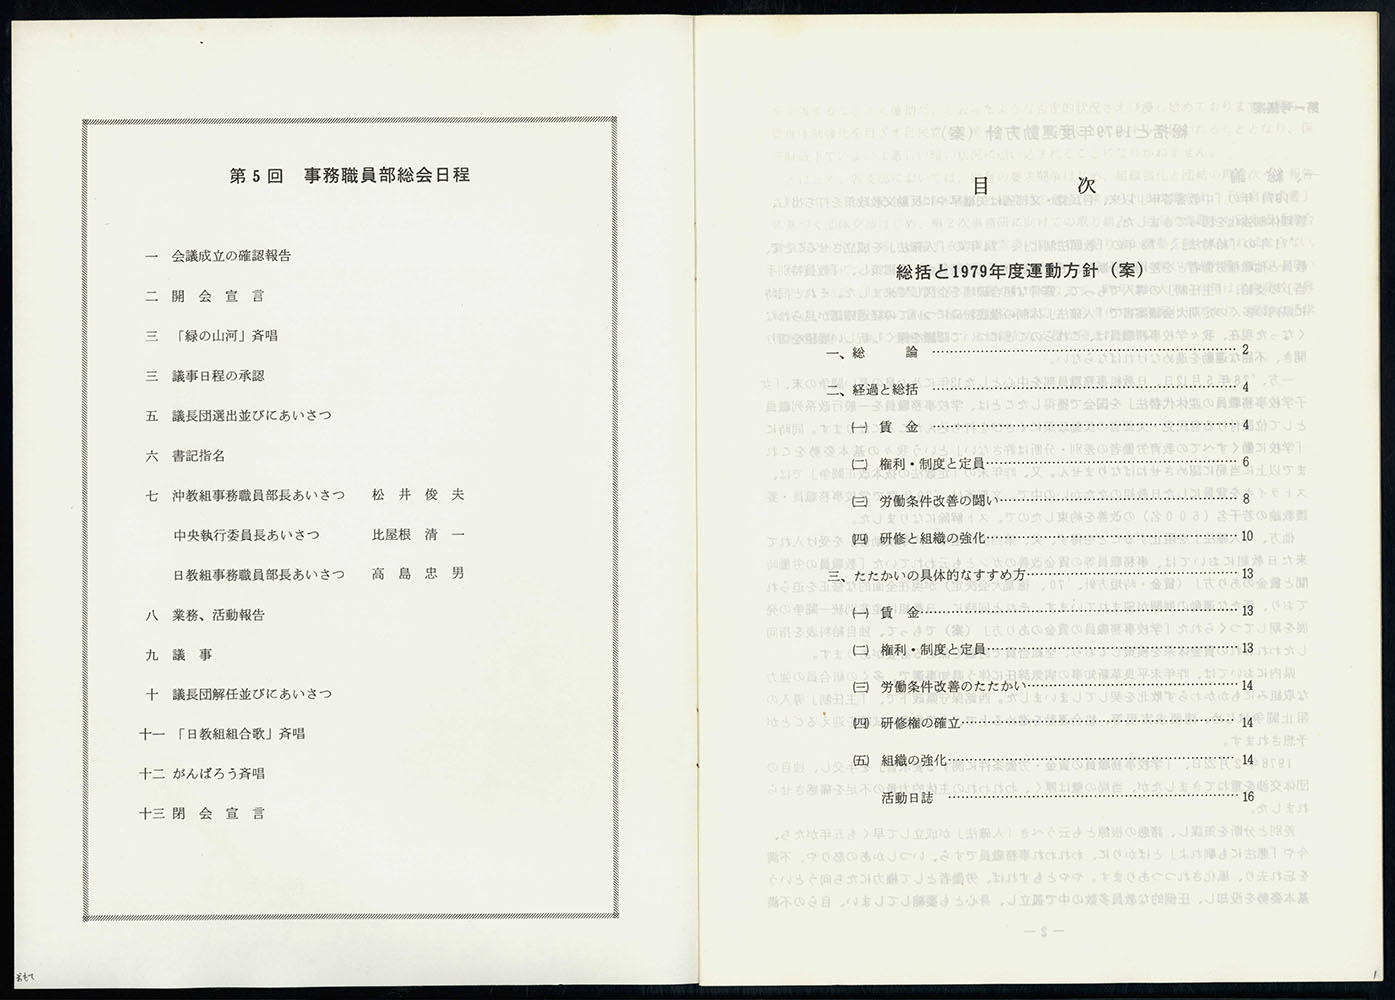 第5回　事務職員部総会日程
一　会議成立の確認報告
二　開　会　宣　言
三　「緑の山河」斉唱
三　議事日程の承認
五　議長団選出並びにあいさつ
六　書記指名
七　沖教組事務職員部長あいさつ　　松　井　俊　夫
中央執行委員長あいさつ　　比屋根　清　一
日教組事務職員部長あいさつ　　高　島　忠　男
八　業務、活動報告
九　議　事
十　議長団解任並びにあいさつ
十一　「日教組組合歌」斉唱
十二　がんばろう斉唱
十三　閉　会　宣　言
目　　　次
総括と1979年度運動方針（案）
一、総　　論 …… 2
二、経過と総括 …… 4
㈠　賃　金 …… 4
㈡　権利・制度と定員 …… 6
㈢　労働条件改善の闘い …… 8
㈣　研修と組織の強化 …… 10
三、たたかいの具体的なすすめ方 …… 13
㈠　賃　金 …… 13
㈡　権利・制度と定員 …… 13
㈢　労働条件改善のたたかい …… 14
㈣　研修権の確立 …… 14
㈤　組織の強化 …… 14
活動日誌 …… 16
1